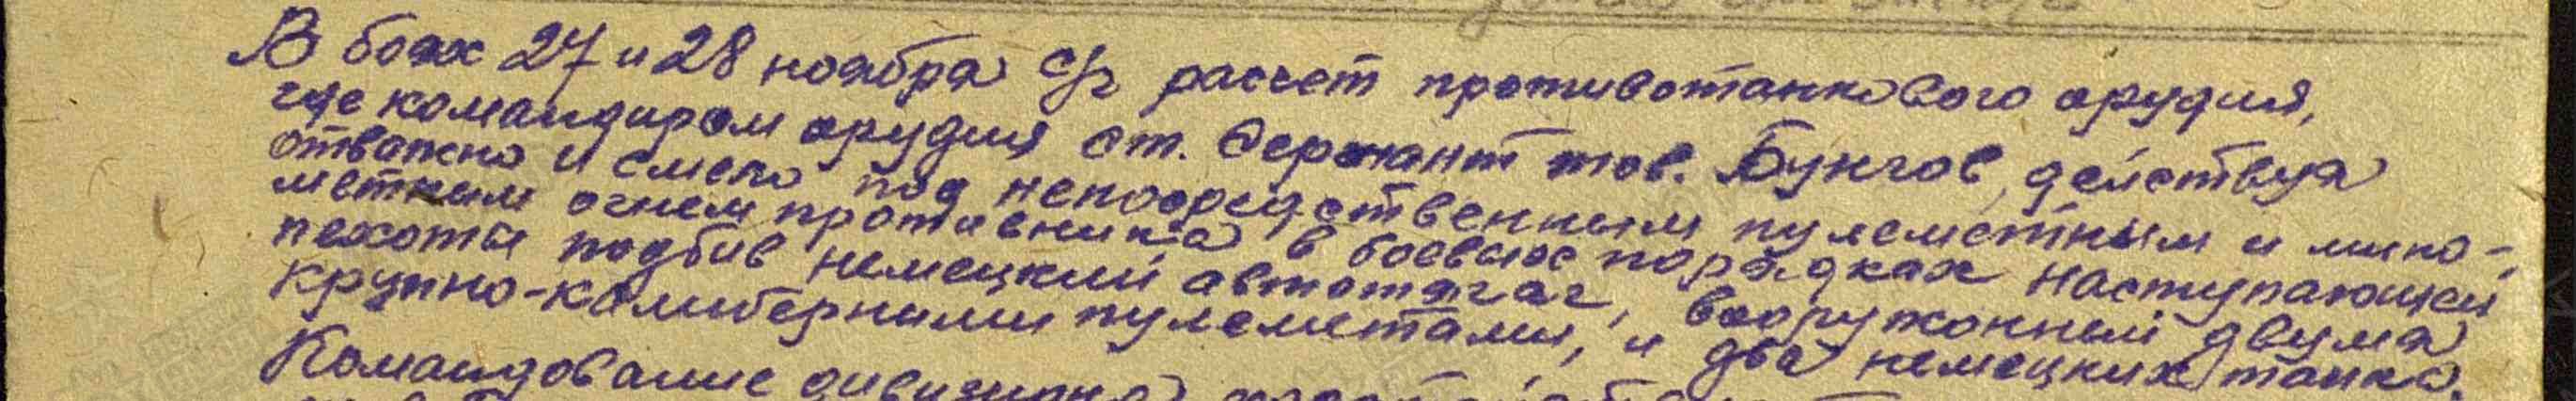 В боях 27 и 28 ноября с/г расчет противотанкового орудия,
где командиром орудия ст. Сержант тов. Бунчов, действуя
отважно и смело под непосредственным пулеметным и мино-
метным огнем противника в боевых порядках наступающей
пехоты подбив немецкий автотягач, вооружонный двума
крупно-калиберными пулеметами, и два немецких танка.
Командование дивизиона